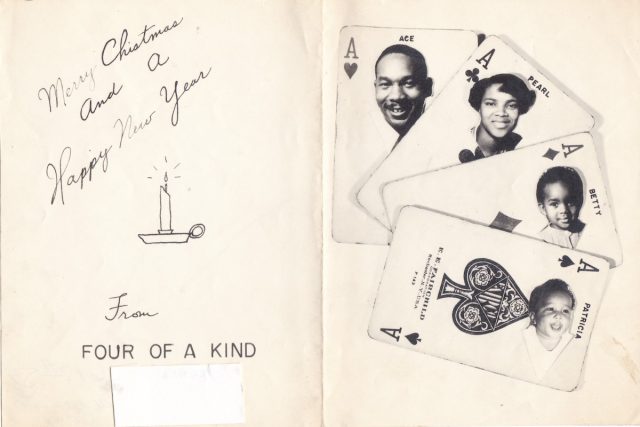 Merry Chistmas
And A
Happy New Year
From
FOUR OF A KIND
A
ACE
A
PEARL
A
BETTY
A
PATRICIA
E. E. FAIRCHILD
A